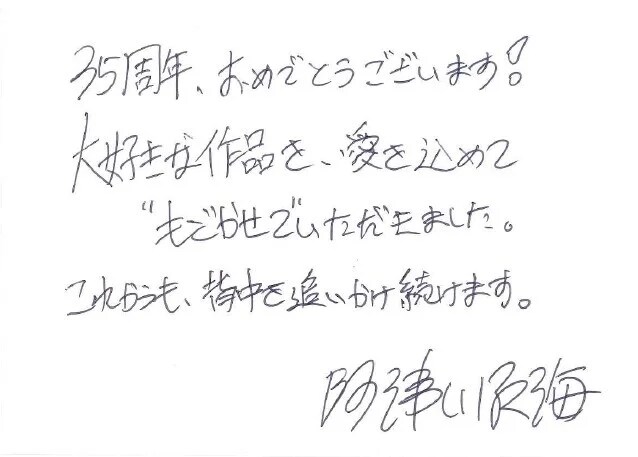 35周年、おめでとうございます!
大好きな作品を、愛を込めて
“もごかせて”いただきました。
これからも、背中を追いかけ続けます。
阿津川辰海